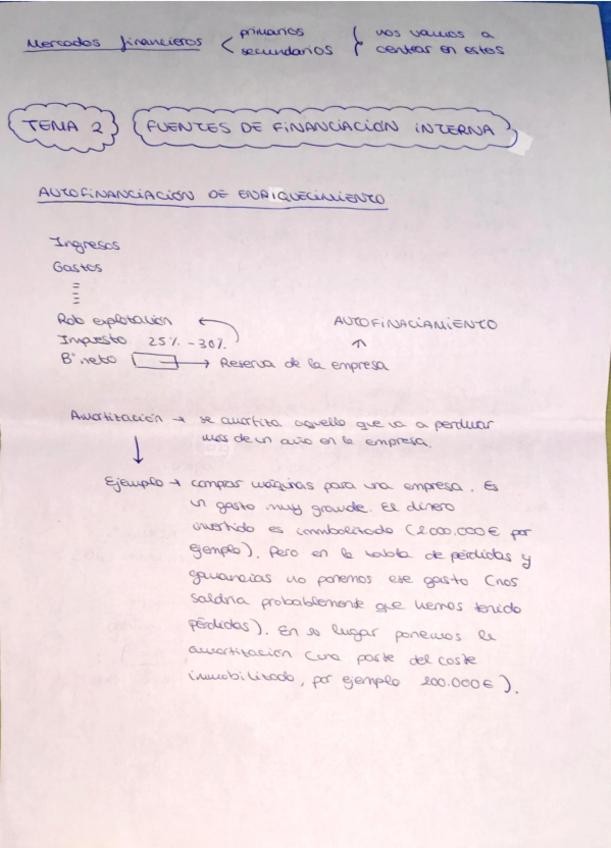 Mercados financieros < primarios } nos vamos a
secundarios } centrar en estos
TEMA 2 FUENTES DE FINANCIACIÓN INTERNA
AUTOFINANCIACIÓN DE ENRIQUECIMIENTO
Ingresos
Gastos
Rdo explotación
AUTOFINACIAMIENTO
Impuesto 25% - 30%
Bº neto → Reserva de la empresa
Amortización → se amortiza aquello que va a perdurar
mas de un año en la empresa.
Ejemplo → comprar máquinas para una empresa. Es
un gasto muy grande. El dinero
invertido es inmobilizado (2.000.000€ por
ejemplo). Pero en la tabla de pérdidas y
ganancias no ponemos ese gasto (nos
saldría probablemente que hemos tenido
pérdidas). En su lugar ponemos la
amortización (una parte del coste
inmobilizado, por ejemplo 200.000€).